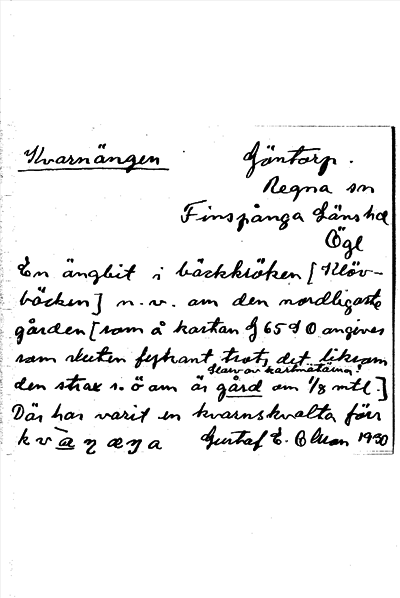 Kvarnängen
Göntorp.
Regna sn
Finspånga Länshd
Ögl
En ängbit i bäckkröken [Klöv-
bäcken] n.v. om den nordligaste
gården [som å kartan J 65 10 angives
som sluten fyrkant trots det liksom
slarv av kartmätarna!
den strax s.ö om är gård om 1/8 mtl.]
Där har varit en kvarnskvalta förr
Gustaf E. Olsson 1930